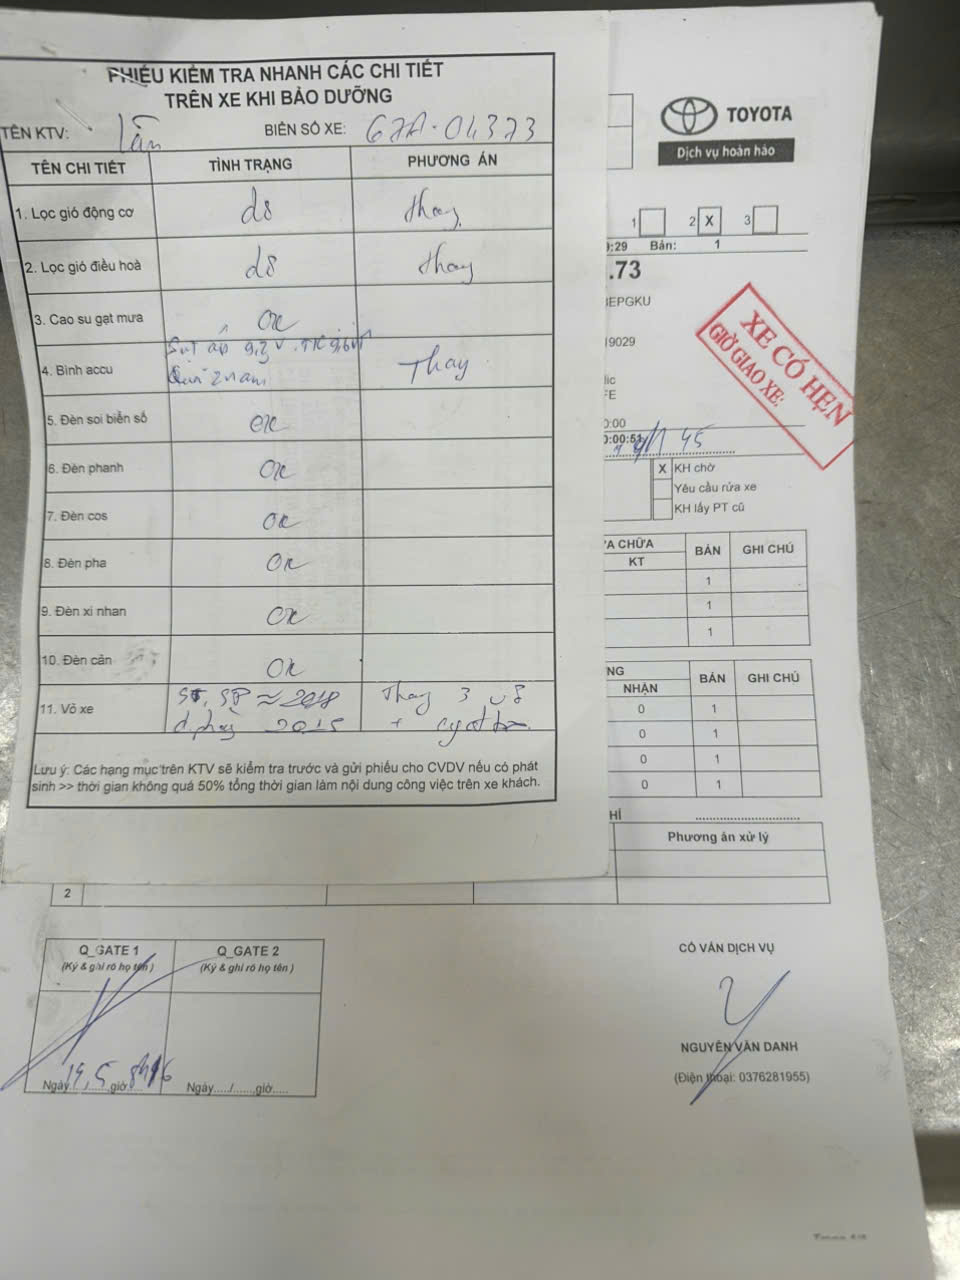 PHIẾU KIỂM TRA NHANH CÁC CHI TIẾT
TRÊN XE KHI BẢO DƯỠNG
TÊN KTV: BIỂN SỐ XE: 67A-04373
TÊN CHI TIẾT TÌNH TRẠNG PHƯƠNG ÁN
1. Lọc gió động cơ dơ thay
2. Lọc gió điều hoà dơ thay
3. Cao su gạt mưa OK
4. Bình accu Sụt áp 9,3V Thay
5. Đèn soi biển số OK
6. Đèn phanh OK
7. Đèn cos OK
8. Đèn pha OK
9. Đèn xi nhan OK
10. Đèn cản OK
11. Vỏ xe ≈ 2018 Thay 3 vỏ
2015 +
Lưu ý: Các hạng mục trên KTV sẽ kiểm tra trước và gửi phiếu cho CVDV nếu có phát
sinh >> thời gian không quá 50% tổng thời gian làm nội dung công việc trên xe khách.
TOYOTA
Dịch vụ hoàn hảo
1 2 X 3
:29 Bản: 1
.73
IEPGKU
19029
XE CÓ HẸN
GIỜ GIAO XE:
lic
FE
0:00
0:00:51 45
X KH chờ
Yêu cầu rửa xe
KH lấy PT cũ
ỬA CHỮA BẢN GHI CHÚ
KT
1
1
1
NG BẢN GHI CHÚ
NHẬN
0 1
0 1
0 1
0 1
HÍ
Phương án xử lý
2
Q_GATE 1 Q_GATE 2
(Ký & ghi rõ họ tên) (Ký & ghi rõ họ tên)
Ngày 19, 5 ,giờ 8h16 Ngày..../......,giờ.....
CỐ VẤN DỊCH VỤ
NGUYỄN VĂN DANH
(Điện thoại: 0376281955)